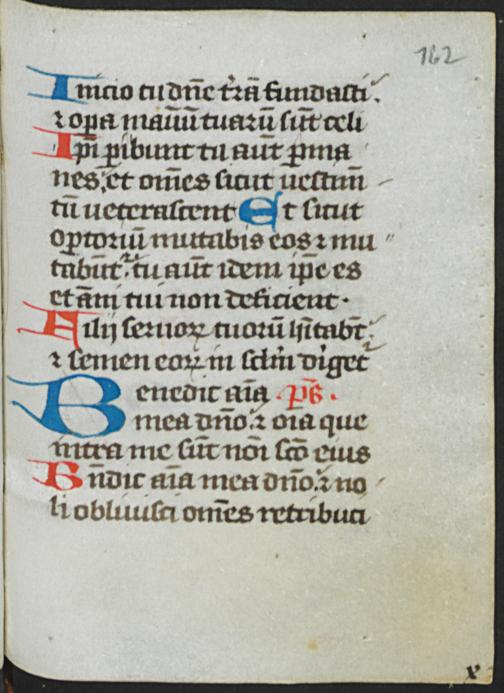 162
Inicio tu dn̄e t̄rā fundasti.
⁊ oꝑa manuū tuarū sūt celi
Ip̄i ꝑibunt tu aūt ꝑma
nes, et om̄es sicut vestim̄
tū veterascent Et sicut
oꝑtoriū mutabis eos ⁊ mu
tabūt̄ᷣ: tu aūt idem ip̄e es
et ān̄i tui non deficient.
Filij seruoꝝ tuorū hītabt̄:
⁊ semen eoꝝ in sc̄lm dīget᷑
Benedic āia p̄s.
mea dn̄o: ⁊ oīa que
intra me sūt nōi sc̄o eius
Bn̄dic āia mea dn̄o: ⁊ no
li obliuisci om̄es retribuci